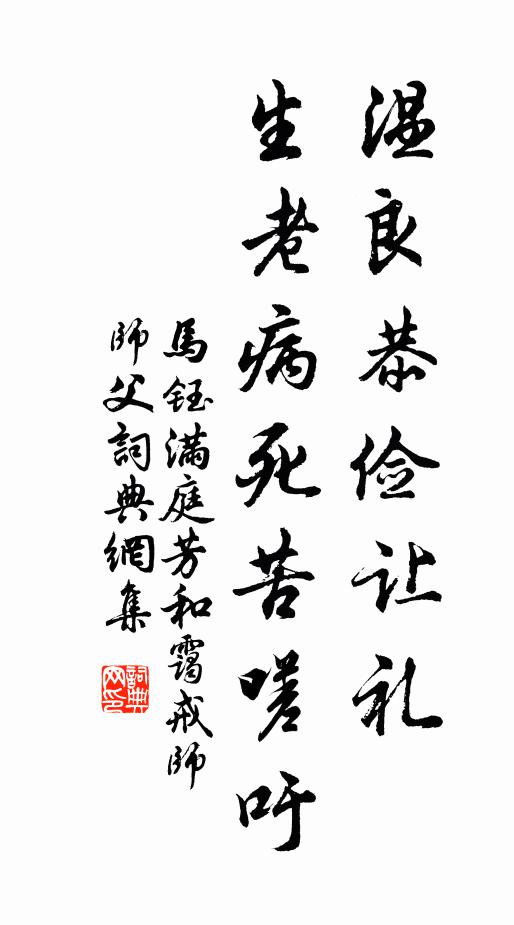 温良恭俭让礼
生老病死苦嗟吁
馬鈺满庭芳和霭戒师
師父詞典網集
詞典网印